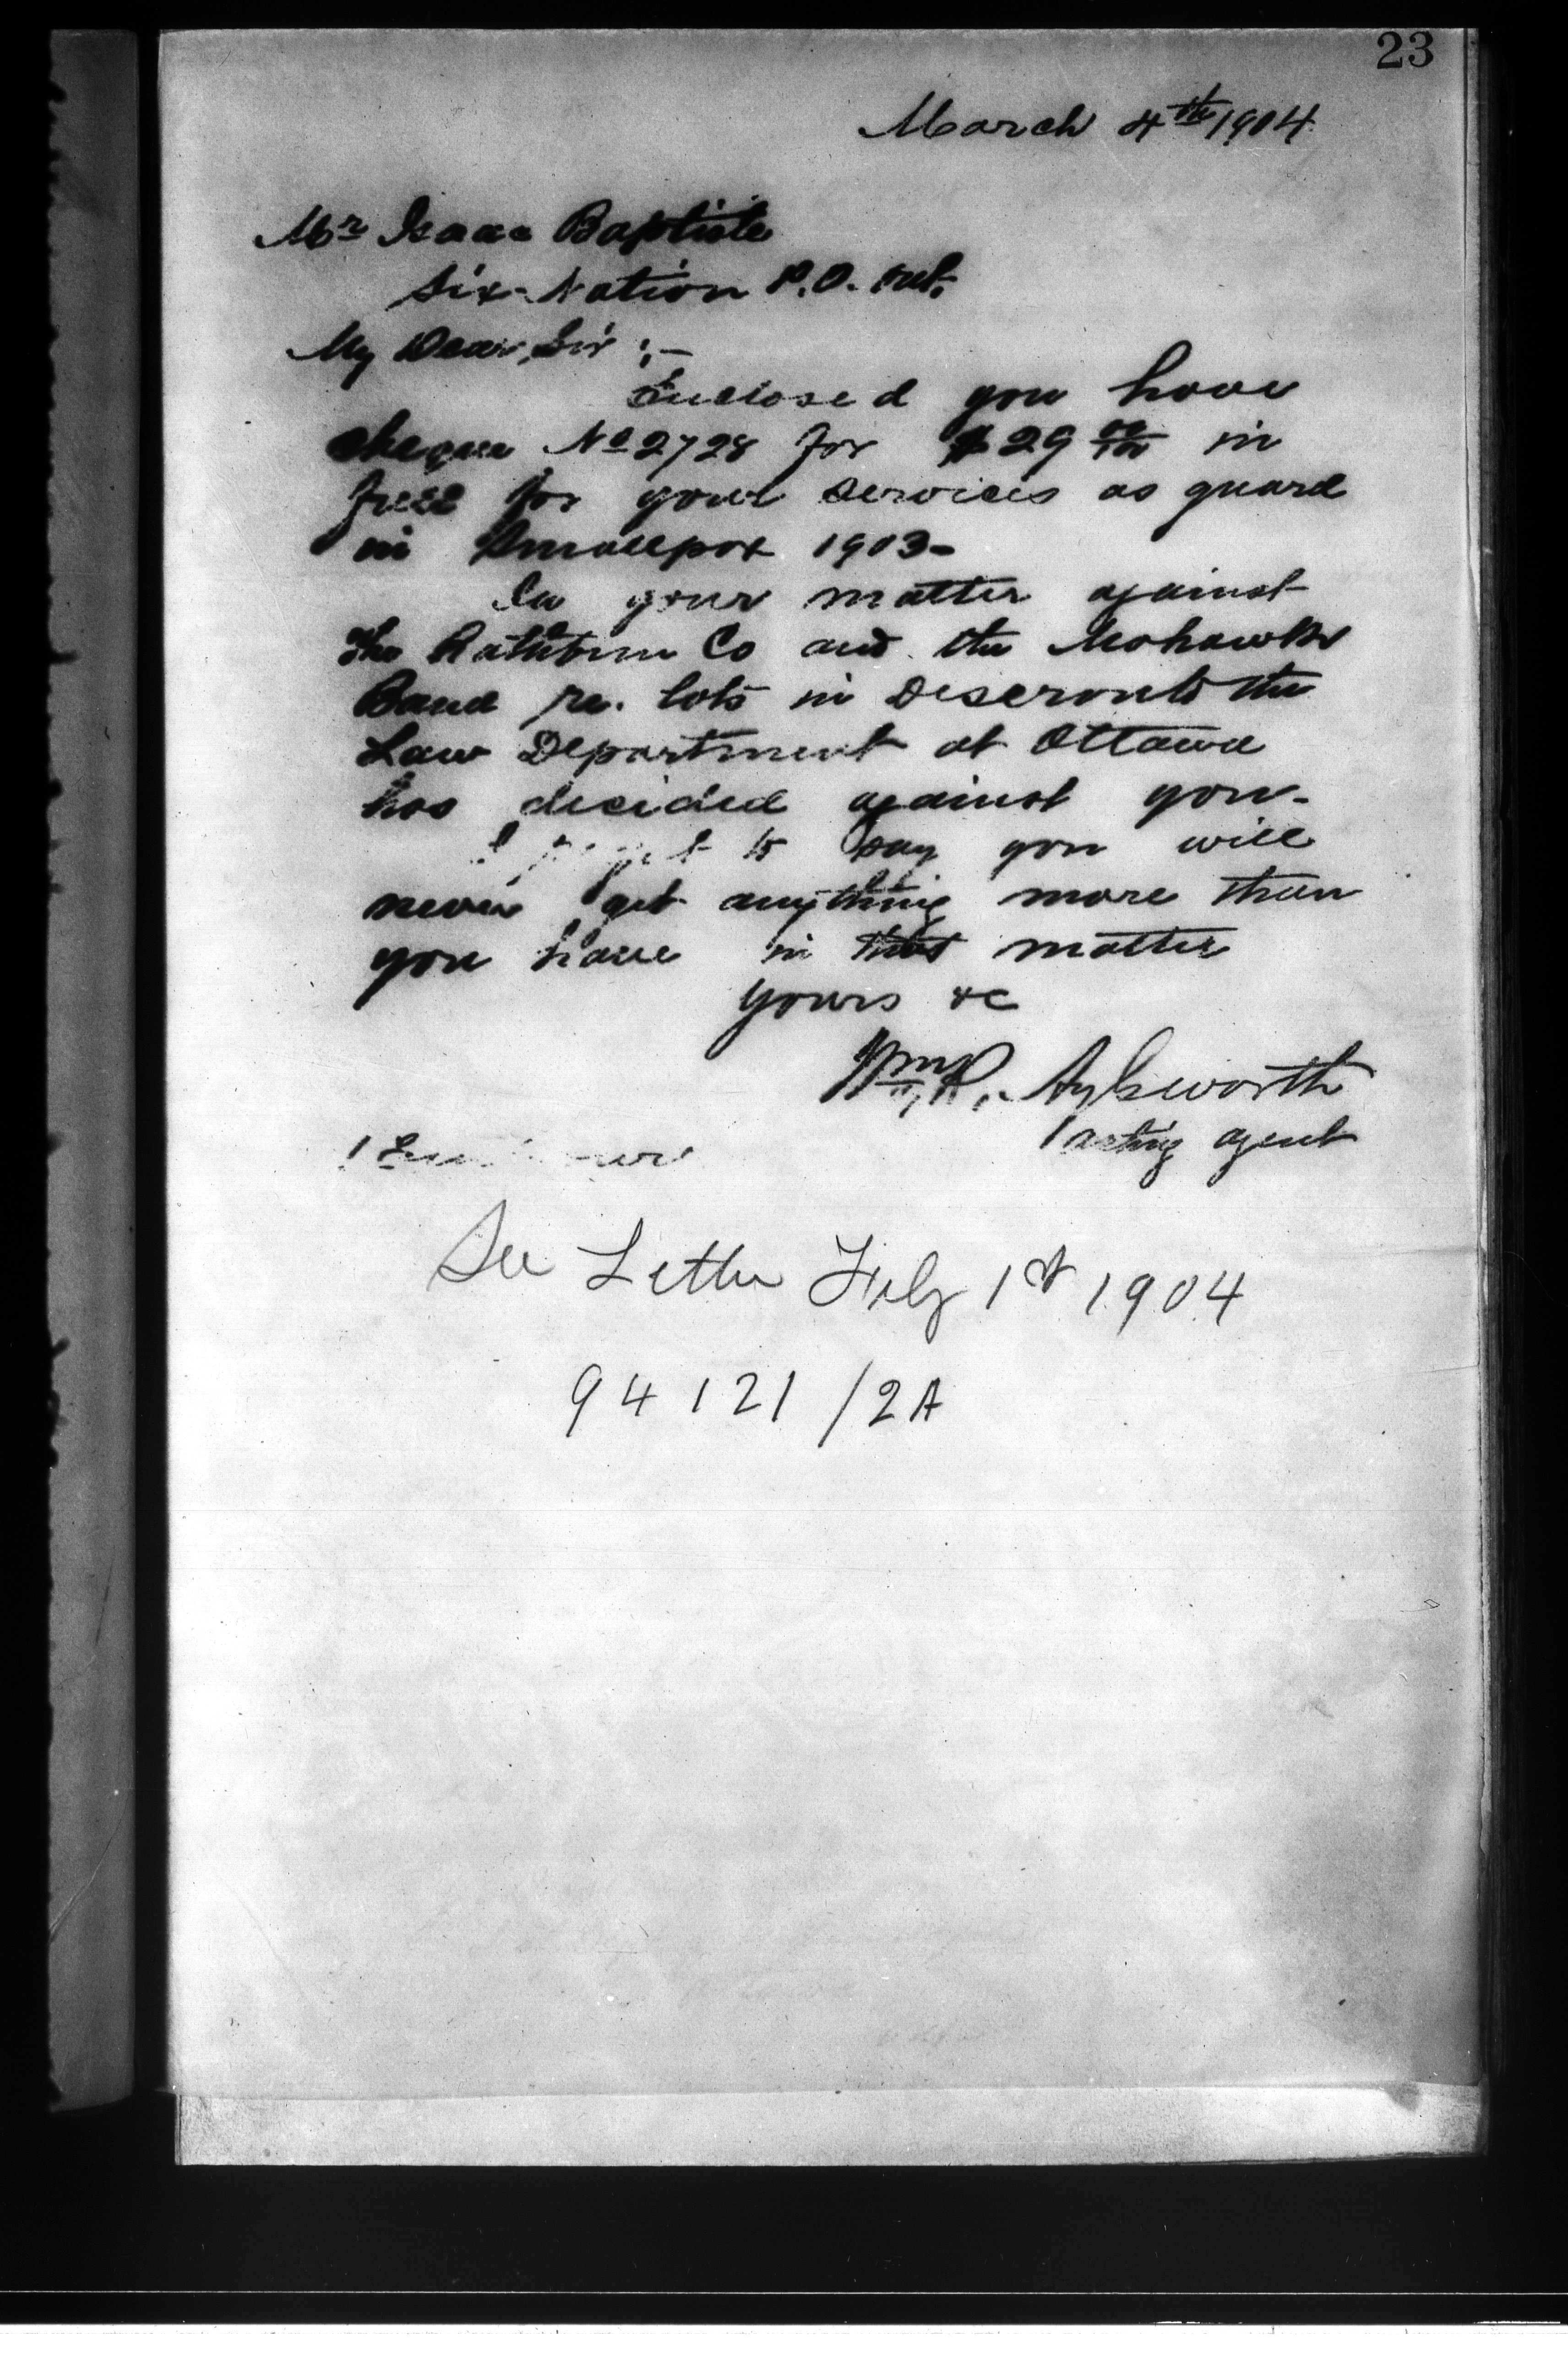 23
March 4th 1904
Mr Isaac Baptiste
Six-Nation P.O. Ont.
My Dear Sir :-
Enclosed you have
cheque No 2728 for $29 00/100 in
full for your services as guard
in Smallpox 1903-
In your matter against
The Rathbun Co and the Mohawk
Band re. lots in Deseronto the
Law Department at Ottawa
has decided against you-
I regret to say you will
never get anything more than
you have in that matter
yours &c
Wm R. Aylsworth
acting agent
See Letter Feby 1st 1904
94121/2A